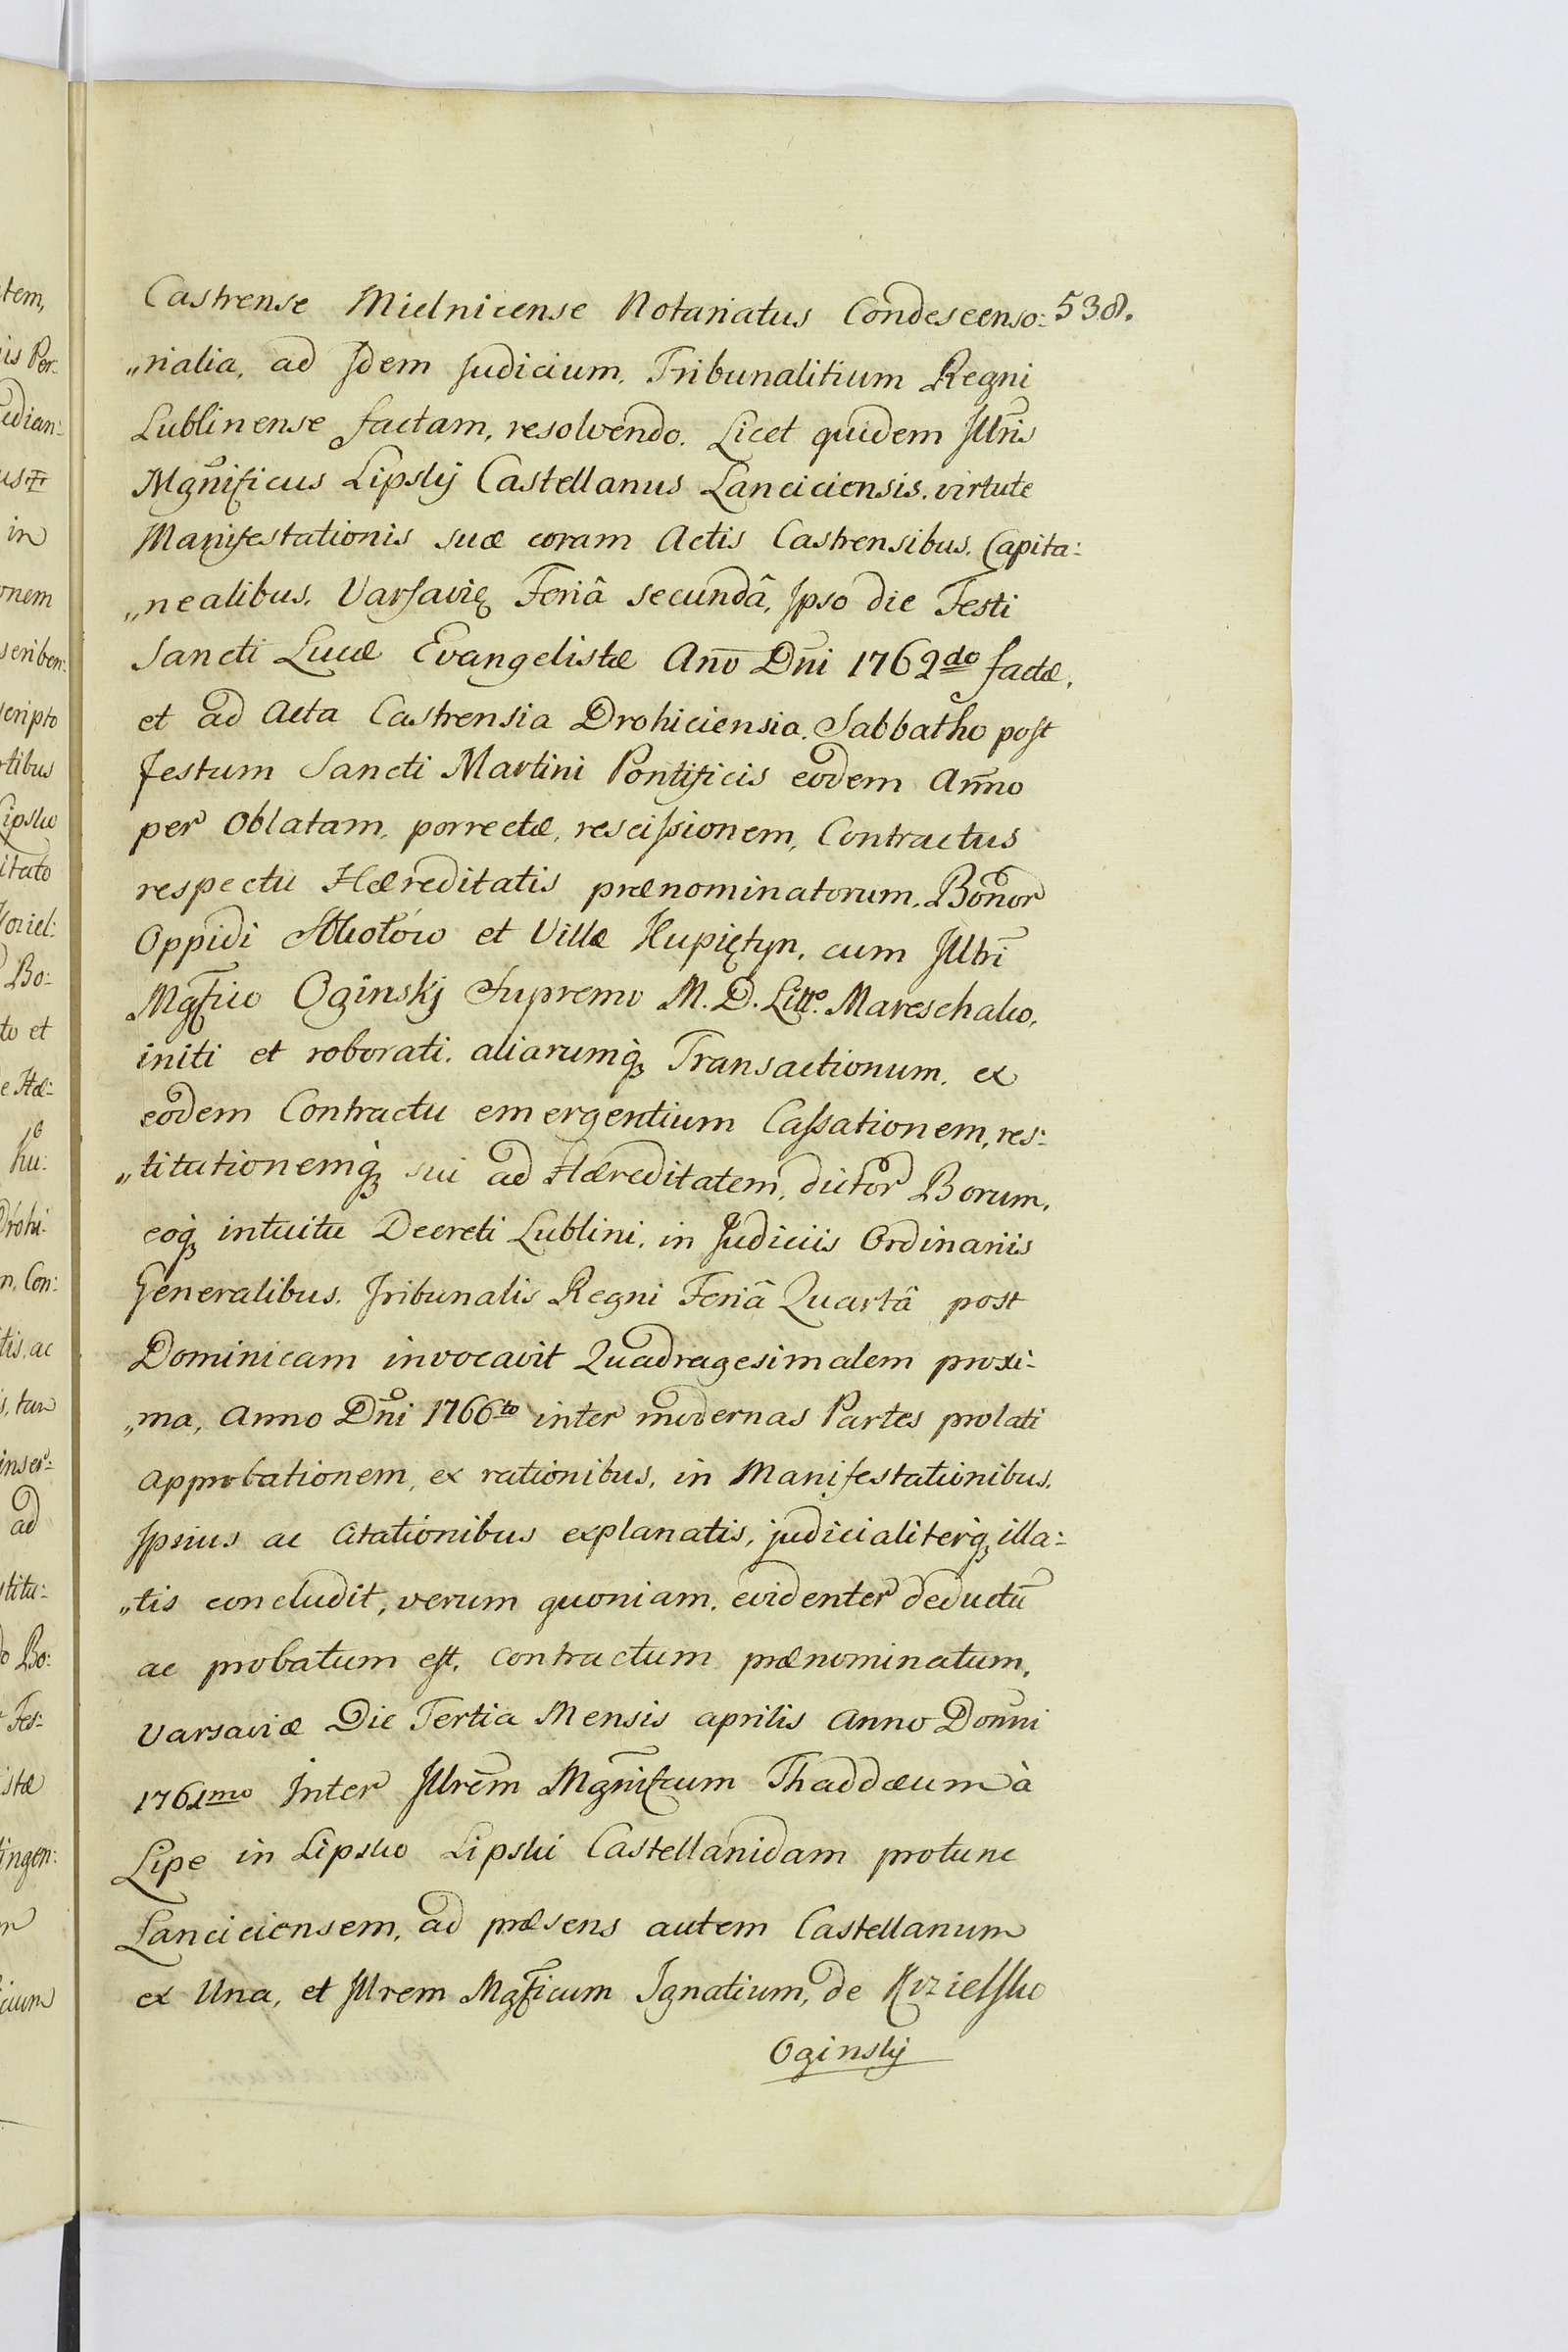 Castrense Mielnicense Notariatus Condescenso: 538.
„rialia, ad Idem Judicium, Tribunalitium Regni
Lublinense factam, resolvendo. Licet quidem Illris
Mgnificus Lipskij Castellanus Lanciciensis, virtute
Manifestationis suæ coram Actis Castrensibus, Capita:
„nealibus, Varsavię Feriâ secundâ, Ipso die Festi
Sancti Lucæ Evangelistæ Ano Dni 1762do factæ,
et ad Acta Castrensia Drohiciensia, Sabbatho post
festum Sancti Martini Pontificis eodem Anno
per Oblatam, porrectæ, rescissionem, Contractus
respectu Hæreditatis prænominatorum, Bonor
Oppidi Mokotów et Villæ Kupiętyn, cum Illtri
Mgfico Oginskj Supremo M. D. Litt. Mareschalco,
initi et roborati, aliarumq; Transactionum, ex
eodem Contractu emergentium Cassationem, res:
„titutionemq; sui ad Hæreditatem, dictor Borum,
eoq; intuitu Decreti Lublini, in Judiciis Ordinariis
Generalibus, Tribunalis Regni Feriâ Quartâ post
Dominicam invocavit Quadragesimalem proxi:
„ma, Anno Dni 1766to inter modernas Partes prolati
approbationem, ex rationibus, in Manifestationibus,
Ipsius ac Citationibus explanatis, judicialiterq; illa:
„tis concludit, verum quoniam, evidenter deductu
ac probatum est, contractum prænominatum,
Varsaviæ Die Tertia Mensis aprilis Anno Domni
1761mo Inter Illrem Mgnificum Thaddæum à
Lipe in Lipsko Lipski Castellanidam protunc
Lanciciensem, ad præsens autem Castellanum
ex Una, et Illrem Mgficum Ignatium, de Kozielsko
Oginskij